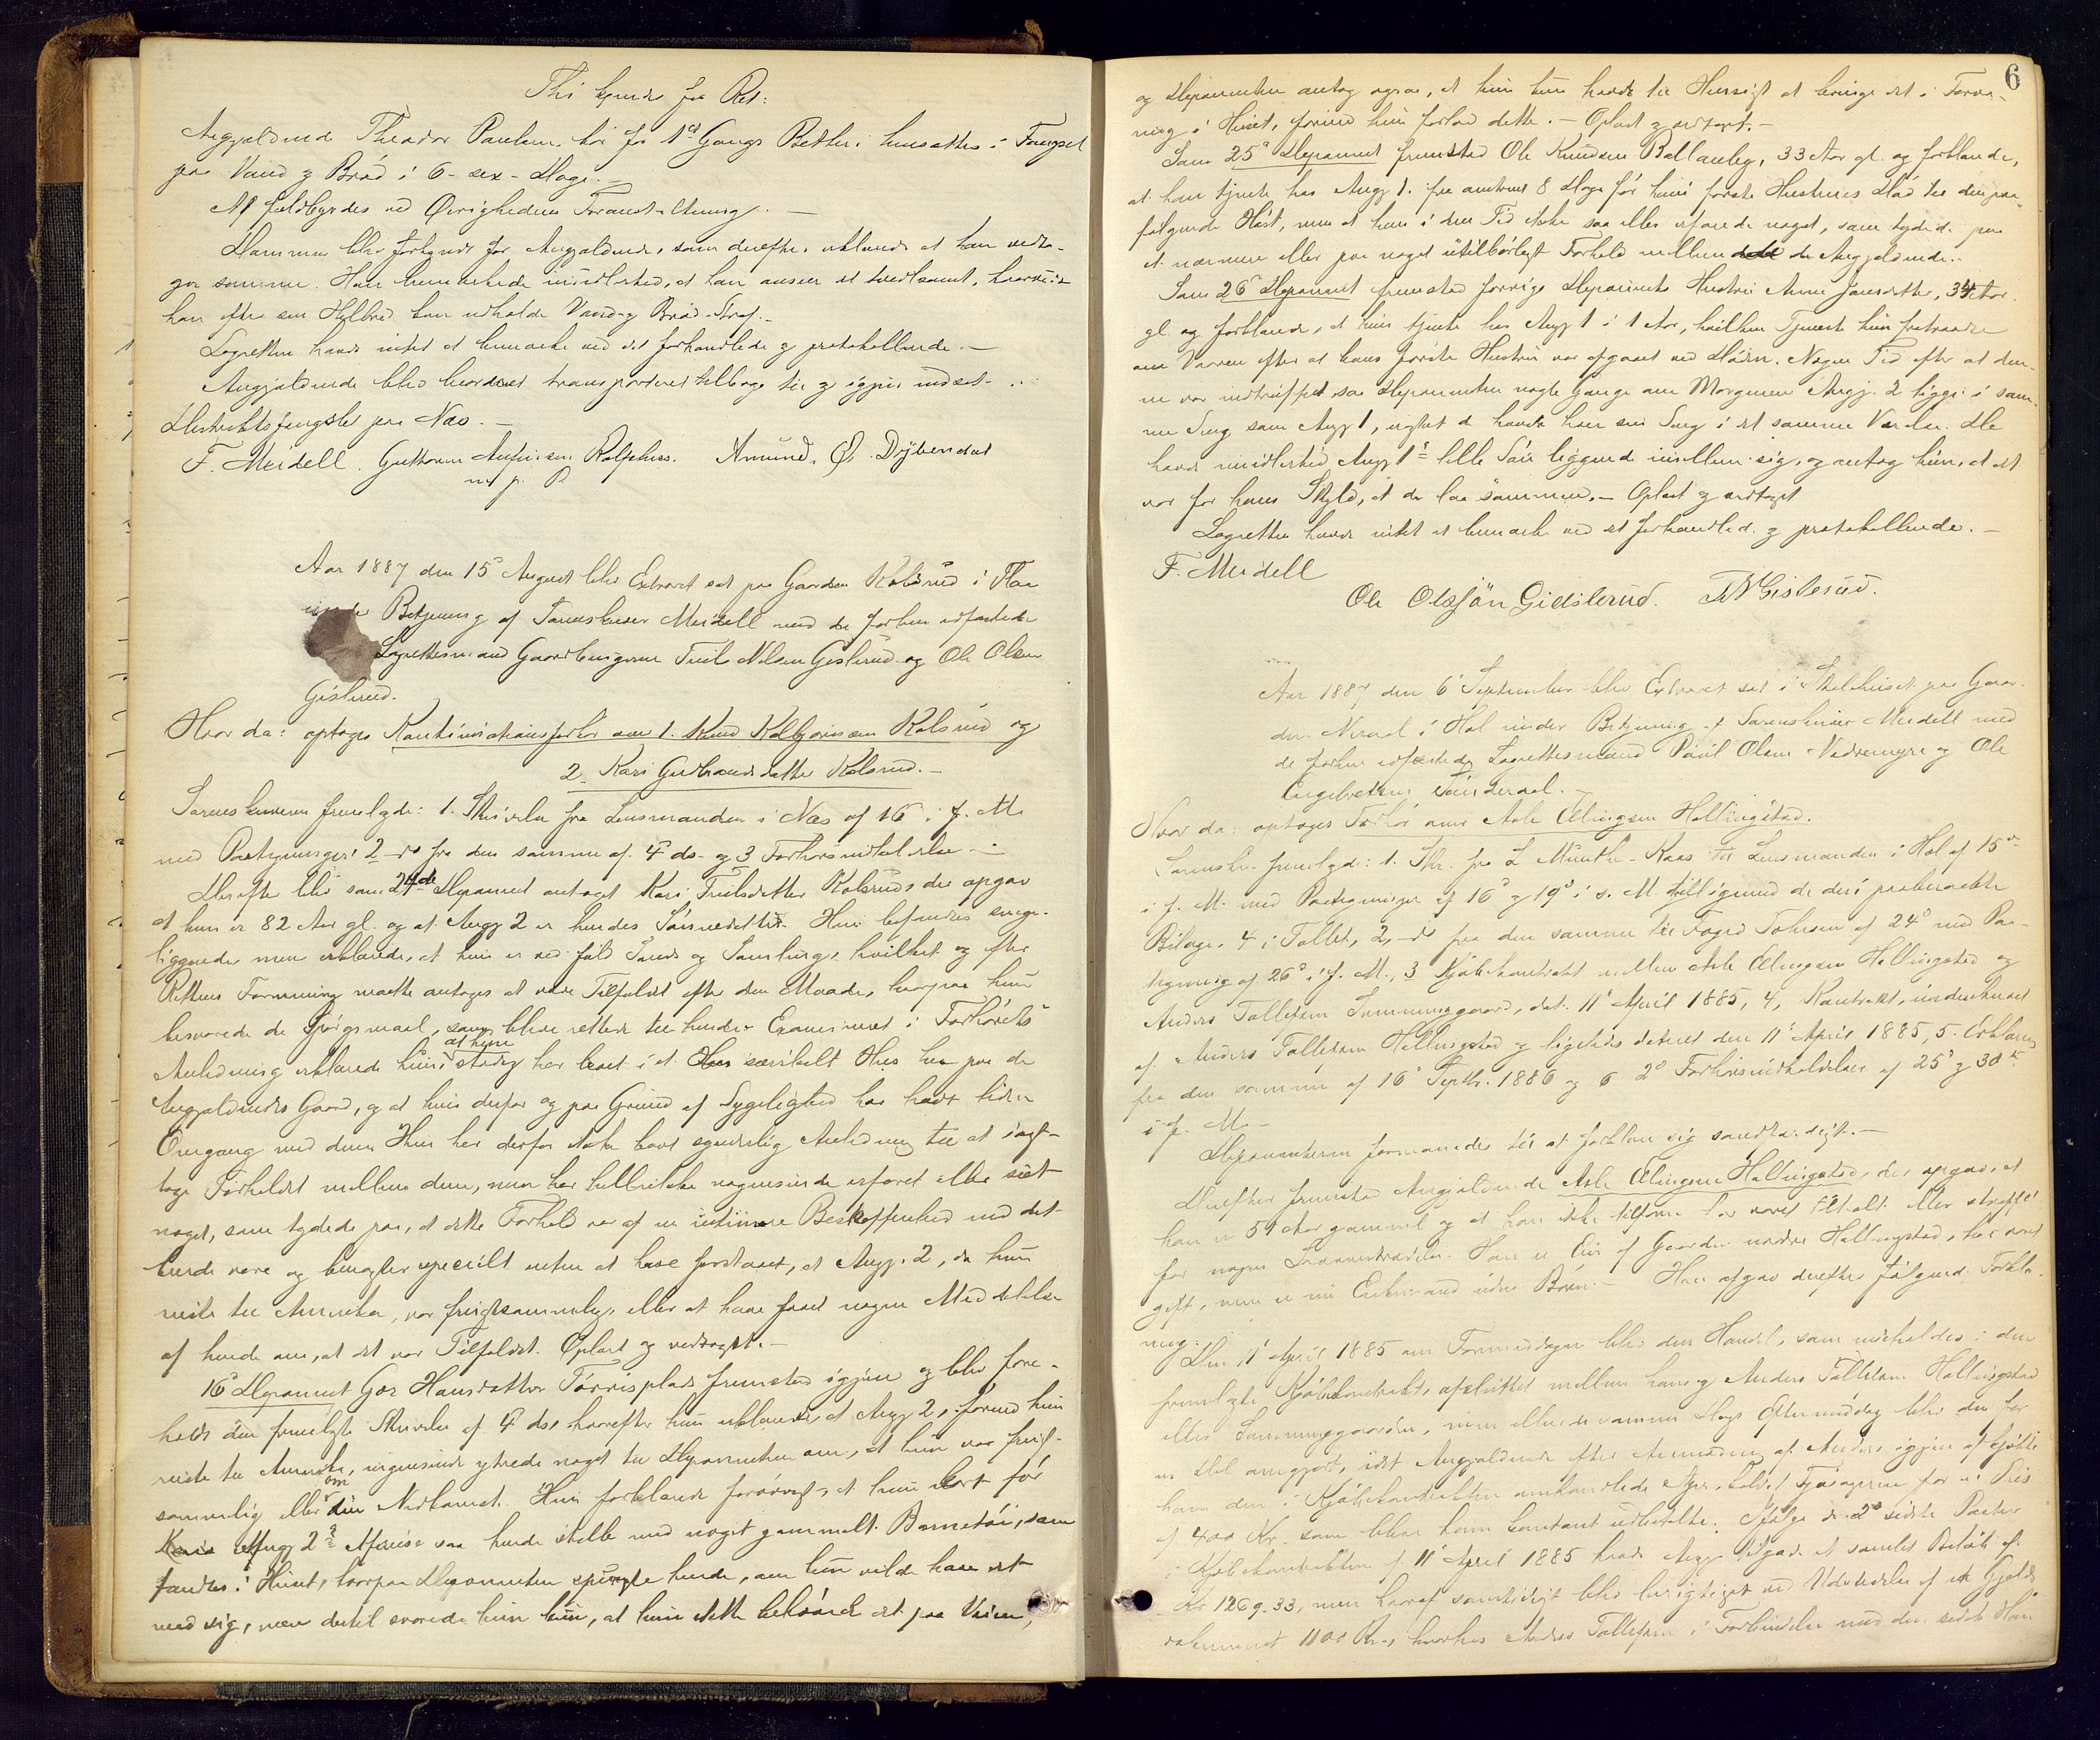 Thi kjendes for Ret:
Angjældende Theodor Paulsen bør for 1ste Gangs Betleri hensættes i Fængsel
paa Vand og Brød i 6 - sex - Dage. -
At fuldbyrdes ved Øvrighedens Foranstaltning. -
Dommen blev forkyndt for Angjældende, som derefter erklærede at han vedto-
ger samme. Han bemærkede imidlertid, at han anser det tvivlsomt, hvorvidt
han efter sin Helbred kan udholde Vand og Brød-Straf. -
Lagretten havde intet at bemærke ved det forhandlede og protokollerede. -
Angjældende blev beordret transporteret tilbage til og igjen indsat i
Distriktsfængslet paa Næs. -
F. Meidell. Guttorm Rolfshus. Amund. Ol. Dybendal
m. p. P.
Aar 1887 den 15de August blev Extraret sat paa Gaarden Kolsrud i Flaa
under Betjening af Sorenskriver Meidell med de forhen edfæstede
Lagrettesmænd Gaardbrugerne Truls Nilsen Gislerud og Ole Olsen
Gislerud.
Hvor da: optoges Kontinuationsforhør over 1. Knud Kolbjørnsen Kolsrud og
2. Kari Gulbrandsdatter Kolsrud. -
Sorenskriveren fremlagde: 1. Skrivelse fra Lensmanden i Næs af 16 i f. M.
med Paategninger, 2 do fra den samme af 4de ds. og 3 Forhørsindkaldelse. -
Derefter blev som 24de Deponent antaget Kari Trulsdatter Kolsrud, der opgav
at hun er 82 Aar gl. og at Angj. 2 er hendes Sønnedatter. Hun befandtes senge-
liggende, men erklærede, at hun er ved fuld Sands og Samling, hvilket og efter
Rettens Formening maatte antages at være Tilfældet efter den Maade, hvorpaa hun
besvarede de Spørgsmaal, som bleve rettede til hende. Examineret i Forhørets
Anledning erklærede hun, at hun stadig har boet i et særskilt Hus her paa de
Angjældendes Gaard, og at hun derfor og paa Grund af Sygelighed har havt liden
Omgang med dem. Hun har derfor ikke havt synderlig Anledning til at iagt-
tage Forholdet mellem dem, men har hellerikke nogensinde erfaret eller seet
noget, som tydede paa, at dette Forhold var af en intimere Beskaffenhed end det
burde være og benægter specielt enten at have forstaaet, at Angj. 2, da hun
reiste til Amerika, var frugtsommelig, eller at have faaet nogen Meddelelse
af hende om, at det var Tilfældet. Oplæst og vedtaget. -
16de Deponent Gro Hansdatter Torrisplads fremstod igjen og blev fore-
holdt den fremlagte Skrivelse af 4de ds, hvorefter hun erklærede, at Angj. 2, førend hun
reiste til Amerika, ingensinde ytrede noget til Deponenten om, at hun var frugt-
sommelig eller om sin Nedkomst. Hun forklarede forøvrigt, at hun kort før
Angj. 2s Afreise saa hende stelle med noget gammelt Barnetøi, som
fandtes i Huset, hvorpaa Deponenten spurgte hende, om hun vilde have det
med sig, men dertil svarede hun kun, at hun ikke behøvede det paa Veien,
6
og Deponenten antog ogsaa, at hun kun havde til Hensigt at bringe det i Forva-
ring i Huset, førend hun forlod dette. - Oplæst og vedtaget. -
Som 25de Deponent fremstod Ole Knudsen Ballanby, 33 Aar gl. og forklarede,
at han tjente hos Angj. 1. fra omtrent 8 Dage før hans første Hustrues Død til den paa-
følgende Høst, men at han i den Tid ikke saa eller erfarede noget, som tydede paa
et nærmere eller paa noget utilbørligt Forhold mellem de Angjældende. -
Som 26de Deponent fremstod forrige Deponents Hustru Anne Jonsdatter, 34 Aar
gl. og forklarede, at hun tjente hos Angj. 1 i 1 Aar, hvilken Tjeneste hun fratraadte
om Vaaren efter at hans første Hustru var afgaaet ved Døden. Nogen Tid efter at den-
ne var indtruffet, saa Deponenten nogle Gange om Morgenen Angj. 2 ligge i sam-
me Seng som Angj. 1, uagtet de havde hver sin Seng i det samme Værelse. De
havde imidlertid Angj. 1s lille Søn liggende imellem sig, og antog hun, at det
var for hans Skyld, at de laa sammen. - Oplæst og vedtaget
Lagretten havde intet at bemærke ved det forhandlede og protokollerede. -
F. Meidell
Ole Olssøn Gislerud. T N Gislerud.
Aar 1887 den 6te September blev Extraret sat i Skolehuset paa Gaar-
den Neraal i Hol under Betjening af Sorenskriver Meidell med
de forhen edfæstede Lagrettesmænd Paul Olsen Vedremyr og Ole
Engebretsen Sønderaal. -
Hvor da: optoges Forhør over Asle Ellingsen Hallingstad.
Sorenskr. fremlagde: 1. Skr. fra L. Munthe-Kaas til Lensmanden i Hol af 15de
i f. M. med Paategninger af 16de og 19de i s. M. tilligemed de deri paaberaabte
Bilage, 4 i Tallet, 2, do fra den samme til Foged af 24de med Paa-
tegning af 26de i f. M., 3 Kjøbekontrakt mellem Asle Ellingsen Hallingstad og
Anders Tollefsen Sammenggaard, dat. 11te April 1885, 4, Kontrakt, underskrevet
af Anders Tollefsen Hallingstad og ligeledes dateret den 11te April 1885, 5. Erklæring
fra den samme af 16de Septbr. 1886 og 6 2de Forhørsindkaldelser af 25de og 30te
i f. M. -
Deponenterne formanedes til at forklare sig sandfærdigt. -
Derefter fremstod Angjældende Asle Ellingsen Hallingstad, der opgav, at
han er 59 Aar gammel og at han ikke tilforn har været tiltalt eller straffet
for nogen Lovovertrædelse. Han er Eier af Gaarden nedre Hallingstad, har været
gift, men er nu Enkemand uden Børn. - Han afgav derefter følgende Forkla-
ring:
Den 11te April 1885 om Formiddagen blev den Handel, som indeholdes i den
fremlagte Kjøbekontrakt, afsluttet mellem ham og Anders Tollefsen Hallingstad
eller Sammenggaarden, men allerede samme Dags Eftermiddag blev den for
en Del omgjort, idet Angjældende efter Anmodning af Anders igjen afkjøbte
ham den i Kjøbekontrakten omhandlede for en Pris
af 400 Kr. som blev ham kontant udbetalte. Ifølge de 2de sidste Poster
i Kjøbekontrakten af 11te April 1885 havde Angj. tilgode et samlet Beløb af
Kr 1269.33, men heraf samtidigt blev berigtiget ved Udstedelse af et Gjelds-
dokument 1100 Kr., hvorhos Anders Tollefsen i Forbindelse med den sidste Han-